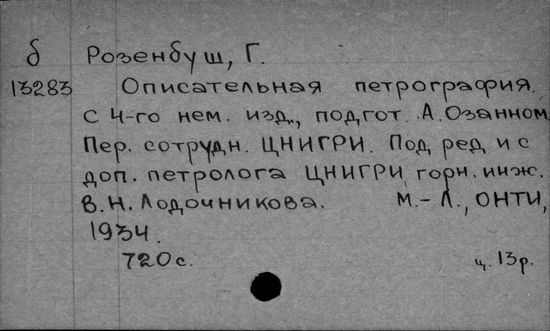 б Розенбуш, Г.
13283 Описательная петрография.
С 4-го нем. изд., подгот. А.Озанном
Пер. сотрудн. ЦНИГРИ. Под ред и с
доп. петролога ЦНИГРИ горн. инж.
В.Н. Лодочникова. М.-Л., ОНТИ,
1934.
720с. ц. 13р.